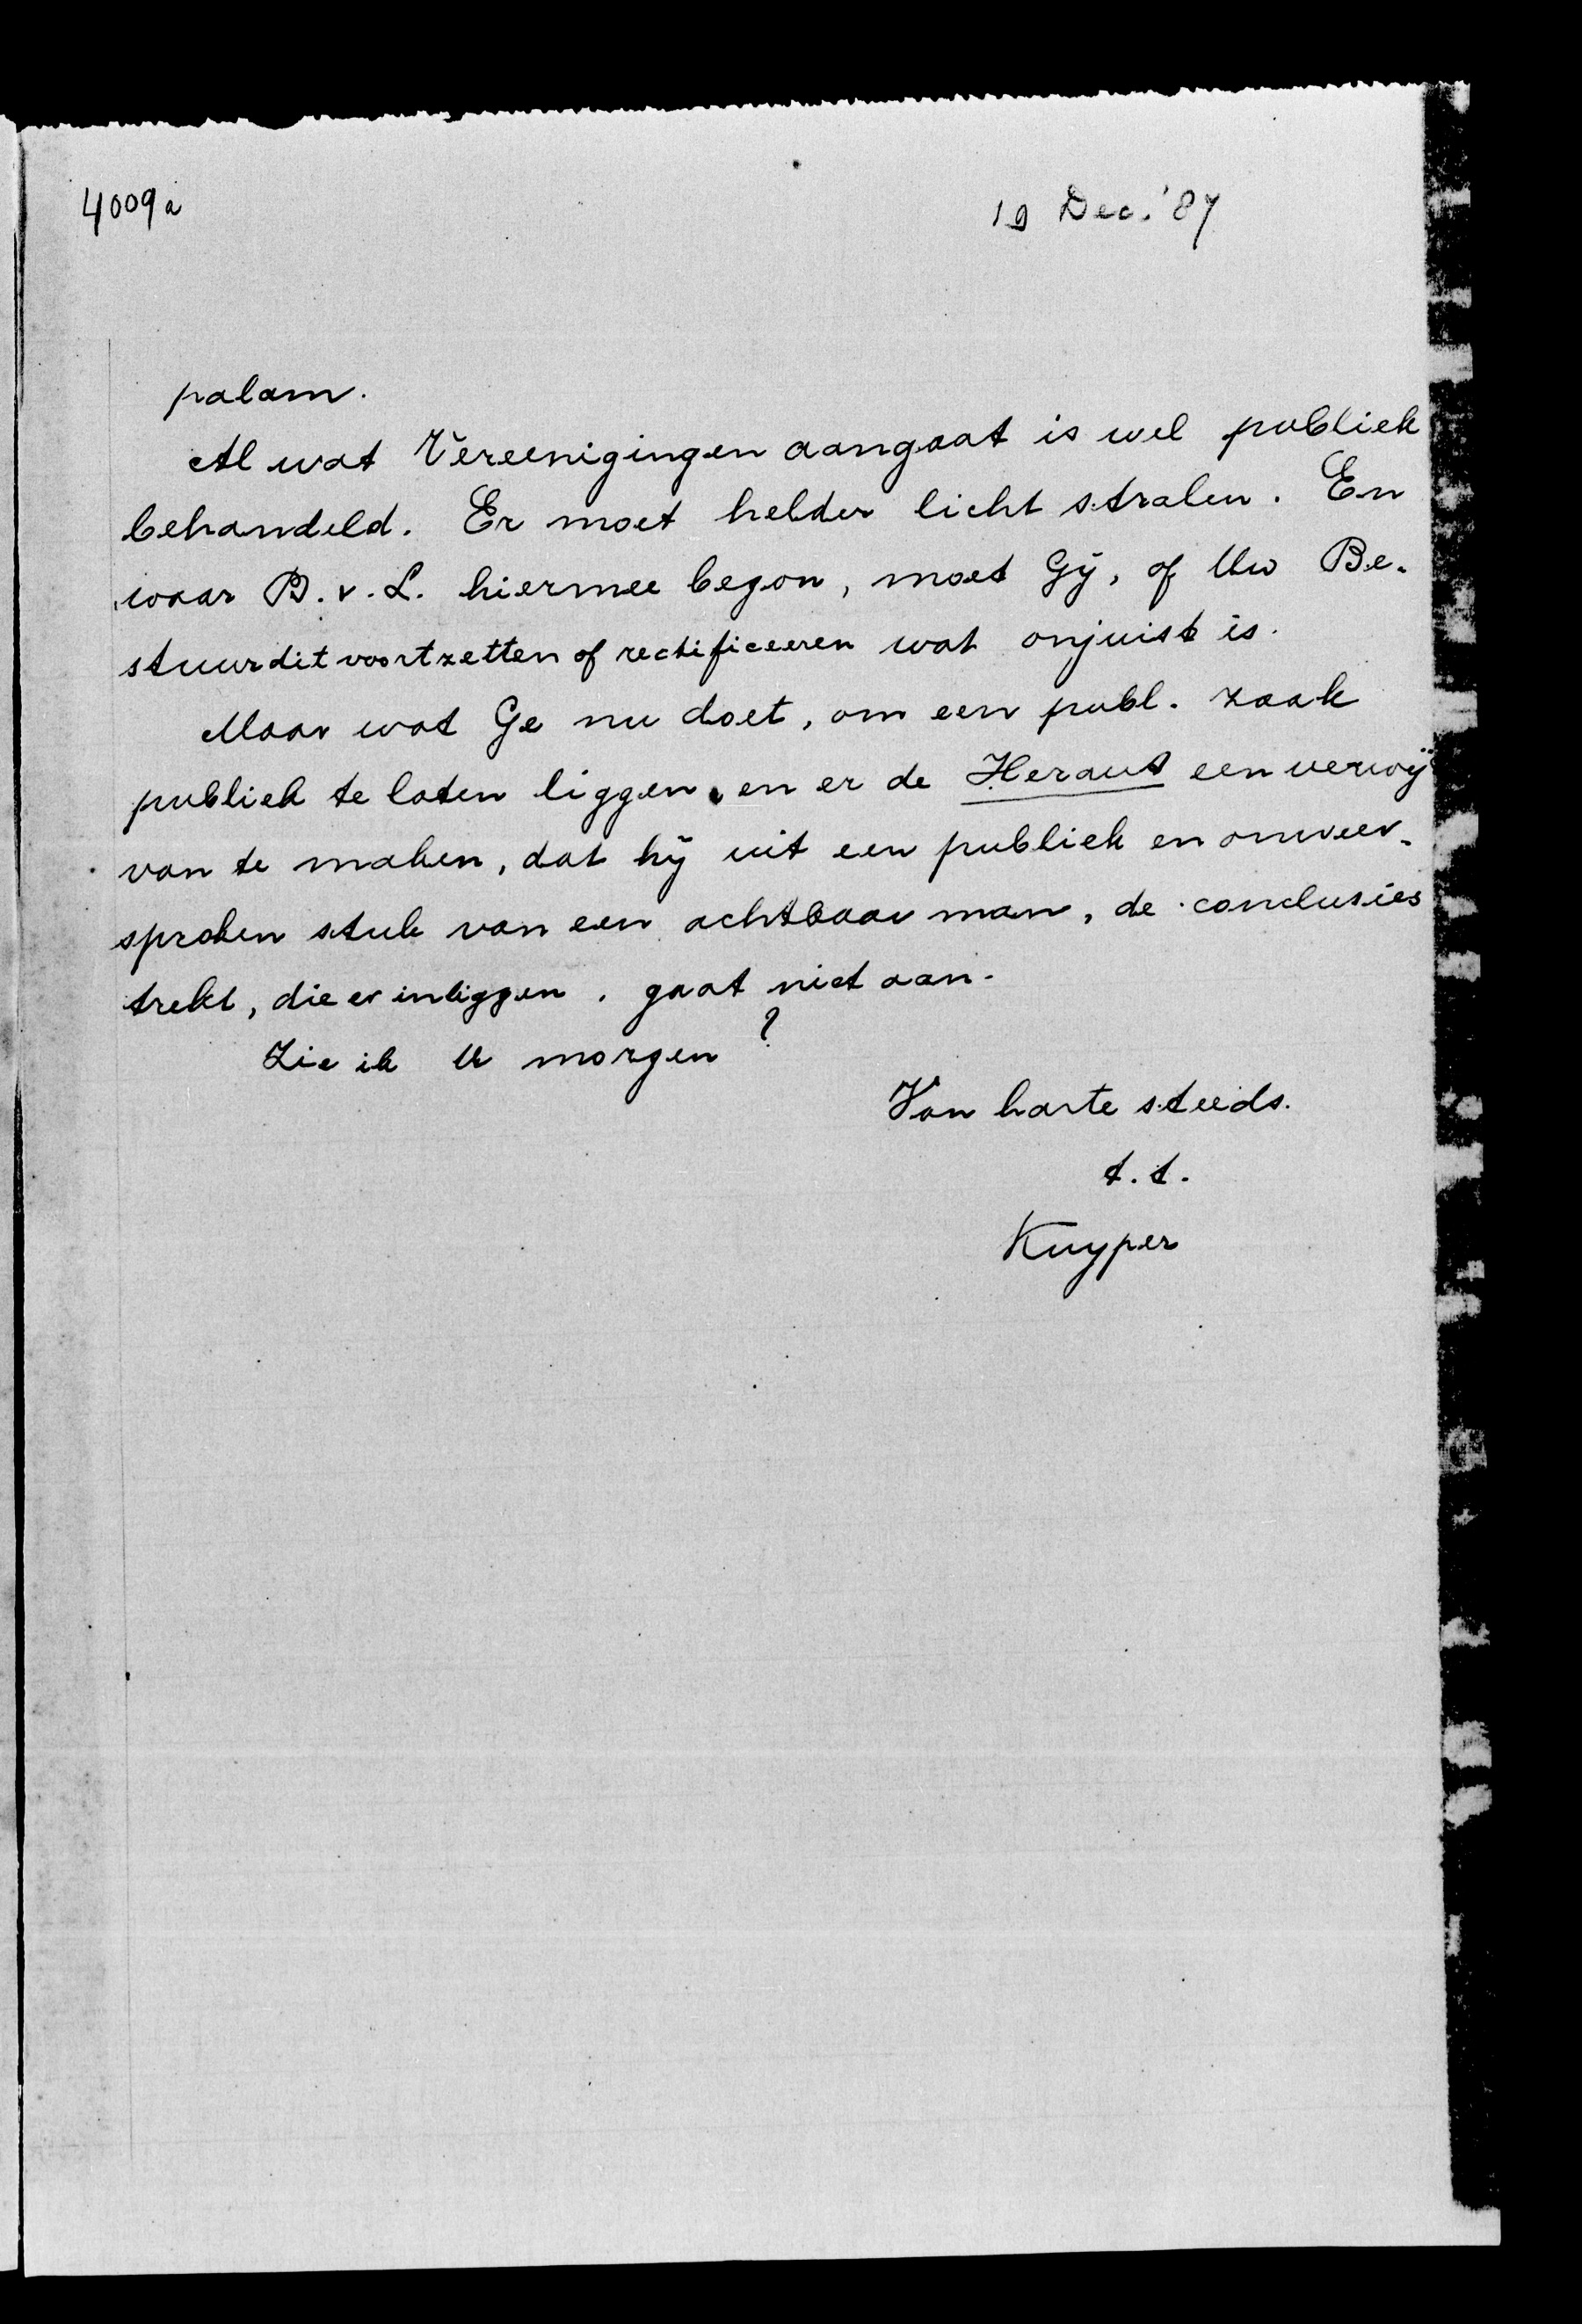 4009a
19 Dec. '87
palam.
Al wat Vereenigingen aangaat is wel publiek
behandeld. Er moet helder licht stralen. En
waar B. v. L. hiermee begon, moet Gij, of Uw Be-
stuur dit voortzetten of rectificeeren wat onjuist is.
Maar wat Ge nu doet, om een publ. zaak
publiek te laten liggen, en er de Heraut een verwijt
van te maken, dat hij uit een publiek en onweer-
sproken stuk van een achtbaar man, de conclusies
trekt, die er inliggen, gaat niet aan.
Zie ik U morgen?
Van harte steeds.
t.t.
Kuyper